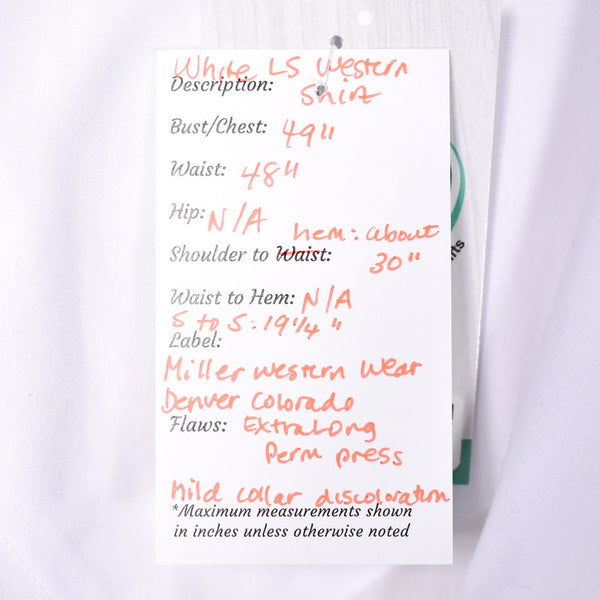 White LS Western
Description: Shirt
Bust/Chest: 49"
Waist: 48"
Hip: N/A
hem: about
Shoulder to Waist: 30"
Waist to Hem: N/A
S to S: 19 1/4"
Label:
Miller Western Wear
Denver Colorado
Flaws: Extra Long
Perm press
Mild collar discoloration
*Maximum measurements shown
in inches unless otherwise noted